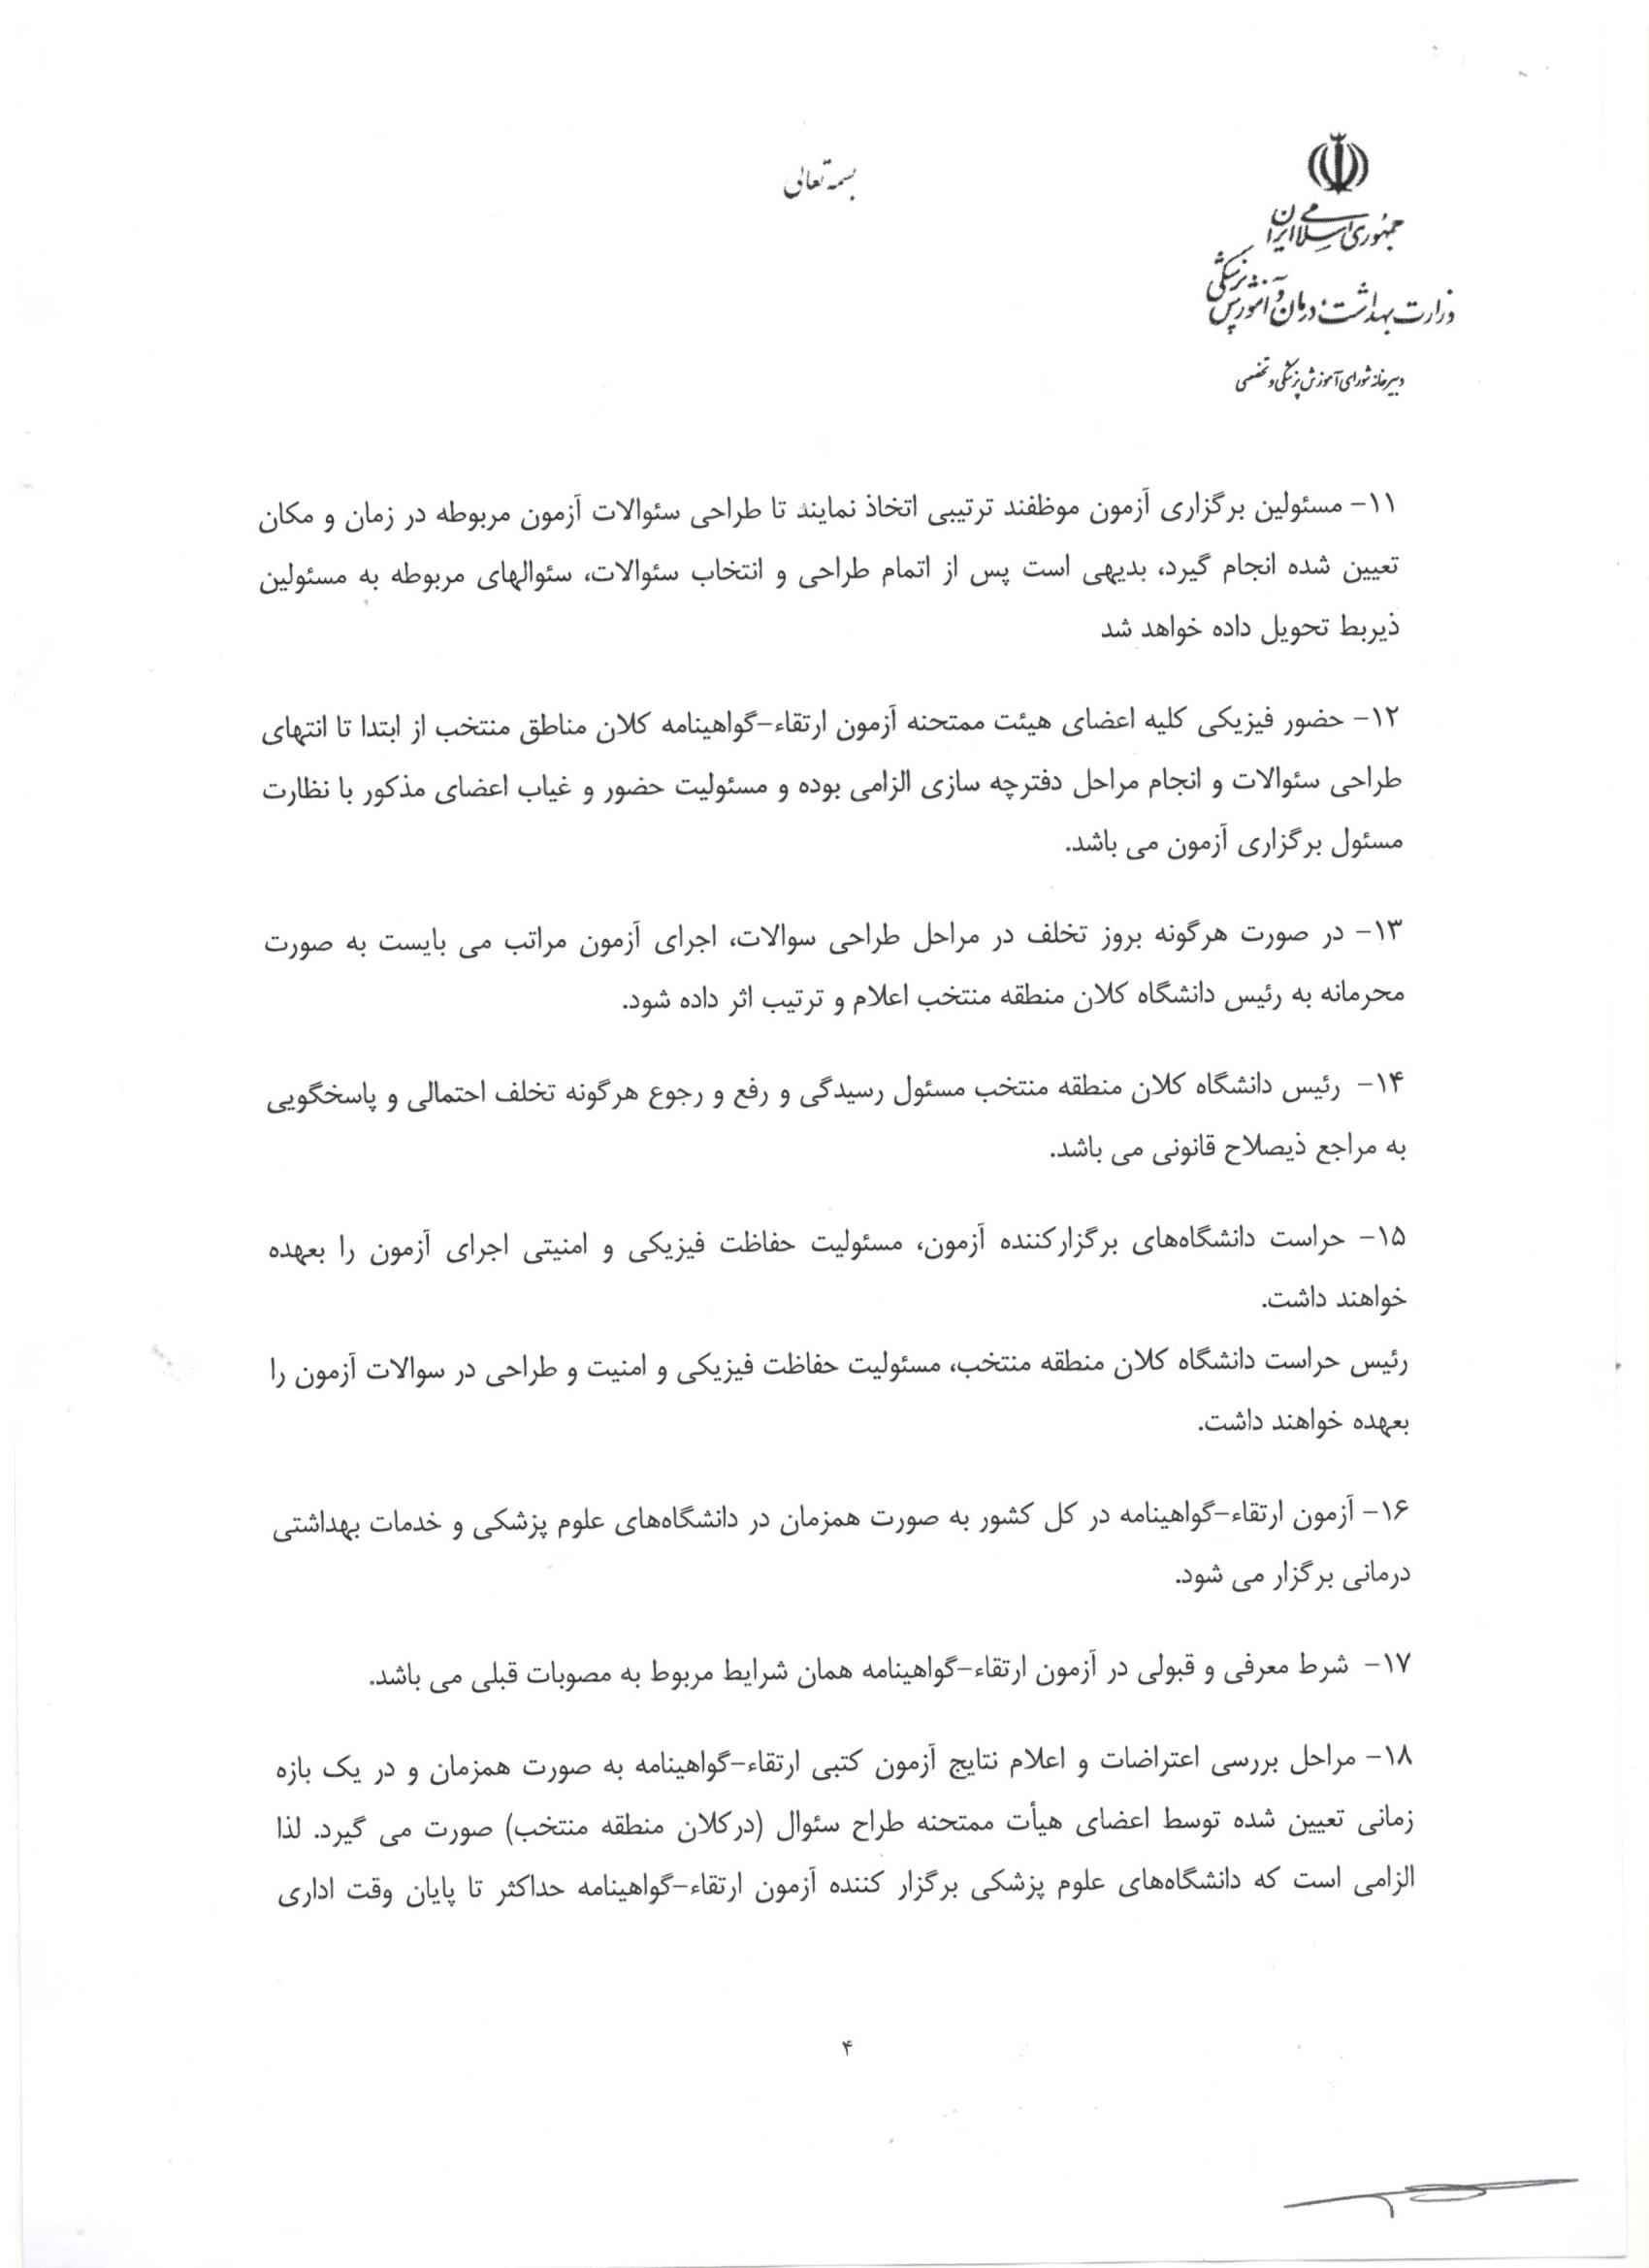 بسمه تعالی
جمهوری اسلامی ایران
وزارت بهداشت، درمان و آموزش پزشکی
دبیرخانه شورای آموزش پزشکی و تخصصی
۱۱- مسئولین برگزاری آزمون موظفند ترتیبی اتخاذ نمایند تا طراحی سئوالات آزمون مربوطه در زمان و مکان
تعیین شده انجام گیرد، بدیهی است پس از اتمام طراحی و انتخاب سئوالات، سئوالهای مربوطه به مسئولین
ذیربط تحویل داده خواهد شد
۱۲- حضور فیزیکی کلیه اعضای هیئت ممتحنه آزمون ارتقاء-گواهینامه کلان مناطق منتخب از ابتدا تا انتهای
طراحی سئوالات و انجام مراحل دفترچه سازی الزامی بوده و مسئولیت حضور و غیاب اعضای مذکور با نظارت
مسئول برگزاری آزمون می باشد.
۱۳- در صورت هرگونه بروز تخلف در مراحل طراحی سوالات، اجرای آزمون مراتب می بایست به صورت
محرمانه به رئیس دانشگاه کلان منطقه منتخب اعلام و ترتیب اثر داده شود.
۱۴- رئیس دانشگاه کلان منطقه منتخب مسئول رسیدگی و رفع و رجوع هرگونه تخلف احتمالی و پاسخگویی
به مراجع ذیصلاح قانونی می باشد.
۱۵- حراست دانشگاه‌های برگزارکننده آزمون، مسئولیت حفاظت فیزیکی و امنیتی اجرای آزمون را بعهده
خواهند داشت.
رئیس حراست دانشگاه کلان منطقه منتخب، مسئولیت حفاظت فیزیکی و امنیت و طراحی در سوالات آزمون را
بعهده خواهند داشت.
۱۶- آزمون ارتقاء-گواهینامه در کل کشور به صورت همزمان در دانشگاه‌های علوم پزشکی و خدمات بهداشتی
درمانی برگزار می شود.
۱۷- شرط معرفی و قبولی در آزمون ارتقاء-گواهینامه همان شرایط مربوط به مصوبات قبلی می باشد.
۱۸- مراحل بررسی اعتراضات و اعلام نتایج آزمون کتبی ارتقاء-گواهینامه به صورت همزمان و در یک بازه
زمانی تعیین شده توسط اعضای هیأت ممتحنه طراح سئوال (درکلان منطقه منتخب) صورت می گیرد. لذا
الزامی است که دانشگاه‌های علوم پزشکی برگزار کننده آزمون ارتقاء-گواهینامه حداکثر تا پایان وقت اداری
۴